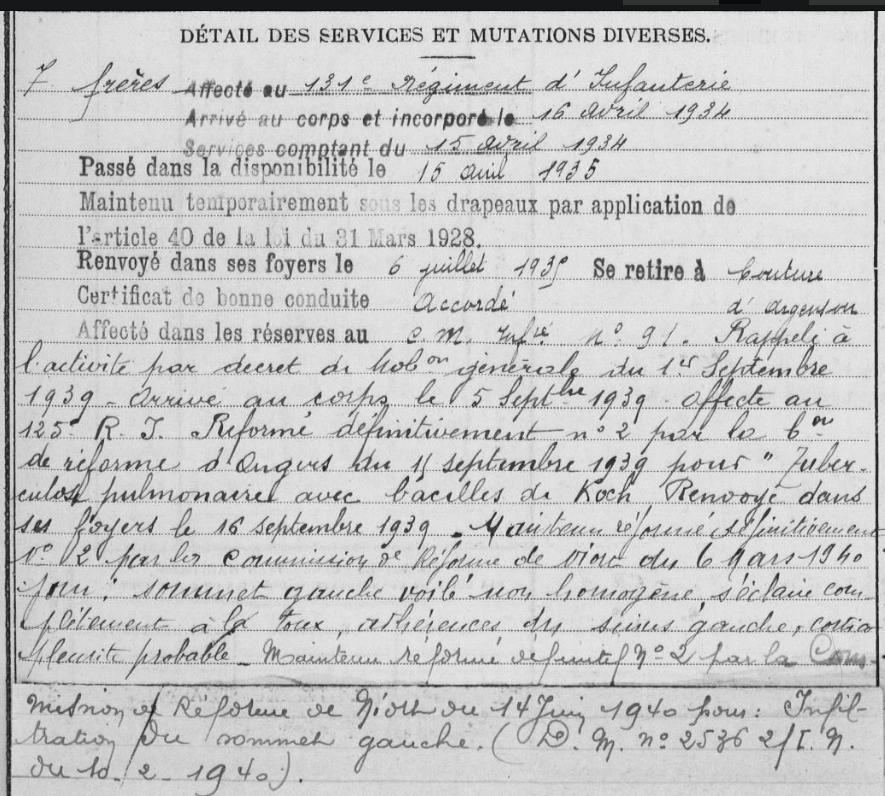 DÉTAIL DES SERVICES ET MUTATIONS DIVERSES.
7 frères Affecté au 131e Régiment d'Infanterie
Arrivé au corps et incorporé le 16 avril 1934
Services comptant du 15 avril 1934
Passé dans la disponibilité le 15 avril 1935
Maintenu temporairement sous les drapeaux par application de
l'article 40 de la loi du 31 Mars 1928.
Renvoyé dans ses foyers le 6 juillet 1935 Se retire à Couture
Certificat de bonne conduite Accordé d'argenson
Affecté dans les réserves au C. M. Infrie n° 91. Rappelé à
l'activité par décret de mobon générale du 1er Septembre
1939 - Arrivé au corps le 5 Septbre 1939. affecté au
125e R. I. Réformé définitivement n° 2 par la Con
de réforme d'Angers du 11 septembre 1939 pour " Tuber-
culose pulmonaire avec bacilles de Koch Renvoyé dans
ses foyers le 16 septembre 1939 - Maintenu réformé définitivement
N° 2 par la Commission de Réforme de Niort du 6 Mars 1940
pour : sommet gauche voilé non homogène, s'éclaire com-
plètement à la toux, adhérences du sinus gauche,
pleurite probable - Maintenu réformé définitif N° 2 par la Com-
mission de Réforme de Niort du 14 Juin 1940 pour : Infil-
tration du sommet gauche. (D. M. n° 2536 2/I. N.
du 10. 2. 1940).